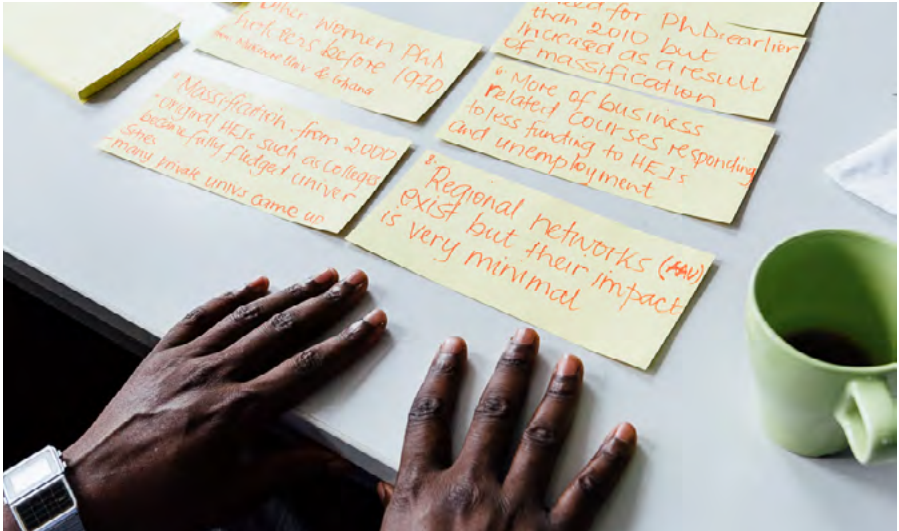 Other women PhD
before 1970
& Ghana
for PhD earlier
than 2010 but
increased as a result
of massification
Massification from 2000
original HEIs such as colleges
became fully fledged univer
many private univs came up
6. More of business
related courses responding
to less funding to HEIs
and unemployment
8.
Regional networks (AAU)
exist but their impact
is very minimal